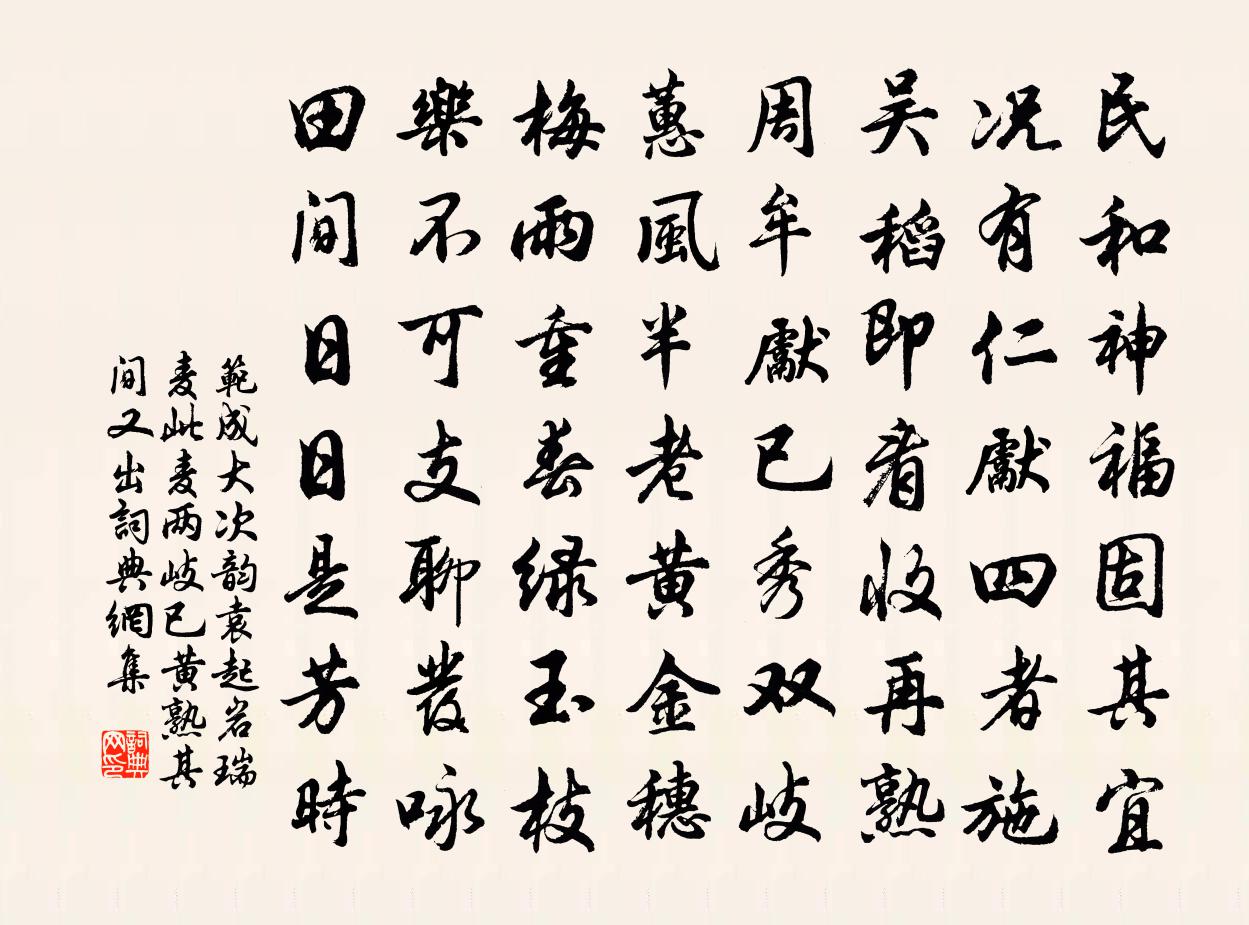 民和神福固其宜
况有仁獻四者施
吴稻即看收再熟
周牟獻已秀双岐
蕙風半老黄金穗
梅雨重春緑玉枝
樂不可支聊發咏
田间日日是芳時
範成大次韵袁起岩瑞
麦此麦两岐已黄熟其
间又出詞典網集
詞典
网印